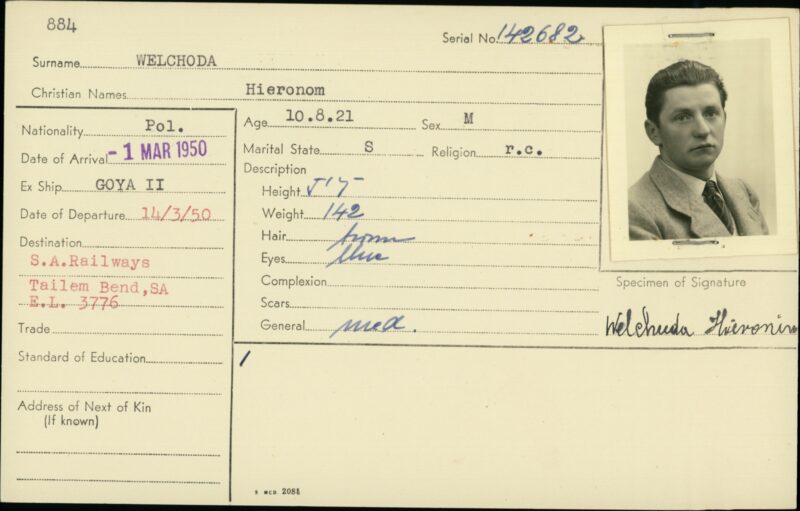 884
Serial No. 142682
Surname WELCHODA
Christian Names Hieronom
Nationality Pol.
Date of Arrival -1 MAR 1950
Ex Ship GOYA II
Date of Departure 14/3/50
Destination
S.A.Railways
Tailem Bend,SA
E.L. 3776
Trade
Standard of Education
Address of Next of Kin
(If known)
Age 10.8.21 Sex M
Marital State S Religion r.c.
Description
Height 5'7
Weight 142
Hair brown
Eyes blue
Complexion
Scars
General med.
Specimen of Signature
Welchuda Hieronim
9 MCD 2084